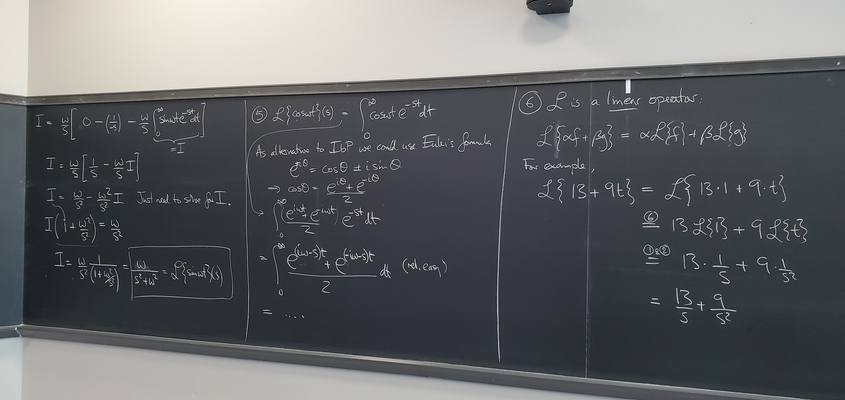 I = ω/s [ 0 - (1/-s) - ω/s ∫₀^∞ sinωt e^{-st} dt ]
= I
I = ω/s [ 1/s - ω/s I ]
I = ω/s² - ω²/s² I Just need to solve for I.
I ( 1 + ω²/s² ) = ω/s²
I = ω/s² 1/(1+ω²/s²) = ω/(s²+ω²) = ℒ{sinωt}(s)
⑤ ℒ{cosωt}(s) = ∫₀^∞ cosωt e^{-st} dt
As alternative to IbP we could use Euler's formula
e^{±iθ} = cosθ ± i sinθ
⇒ cosθ = (e^{iθ} + e^{-iθ})/2
→ ∫₀^∞ (e^{iωt} + e^{-iωt})/2 e^{-st} dt
= ∫₀^∞ (e^{(iω-s)t} + e^{(-iω-s)t})/2 dt (rel. easy)
= .....
⑥ ℒ is a linear operator:
ℒ{αf + βg} = αℒ{f} + βℒ{g}
For example,
ℒ{13 + 9t} = ℒ{13·1 + 9·t}
⑥= 13 ℒ{1} + 9 ℒ{t}
①②= 13 · 1/s + 9 · 1/s²
= 13/s + 9/s²